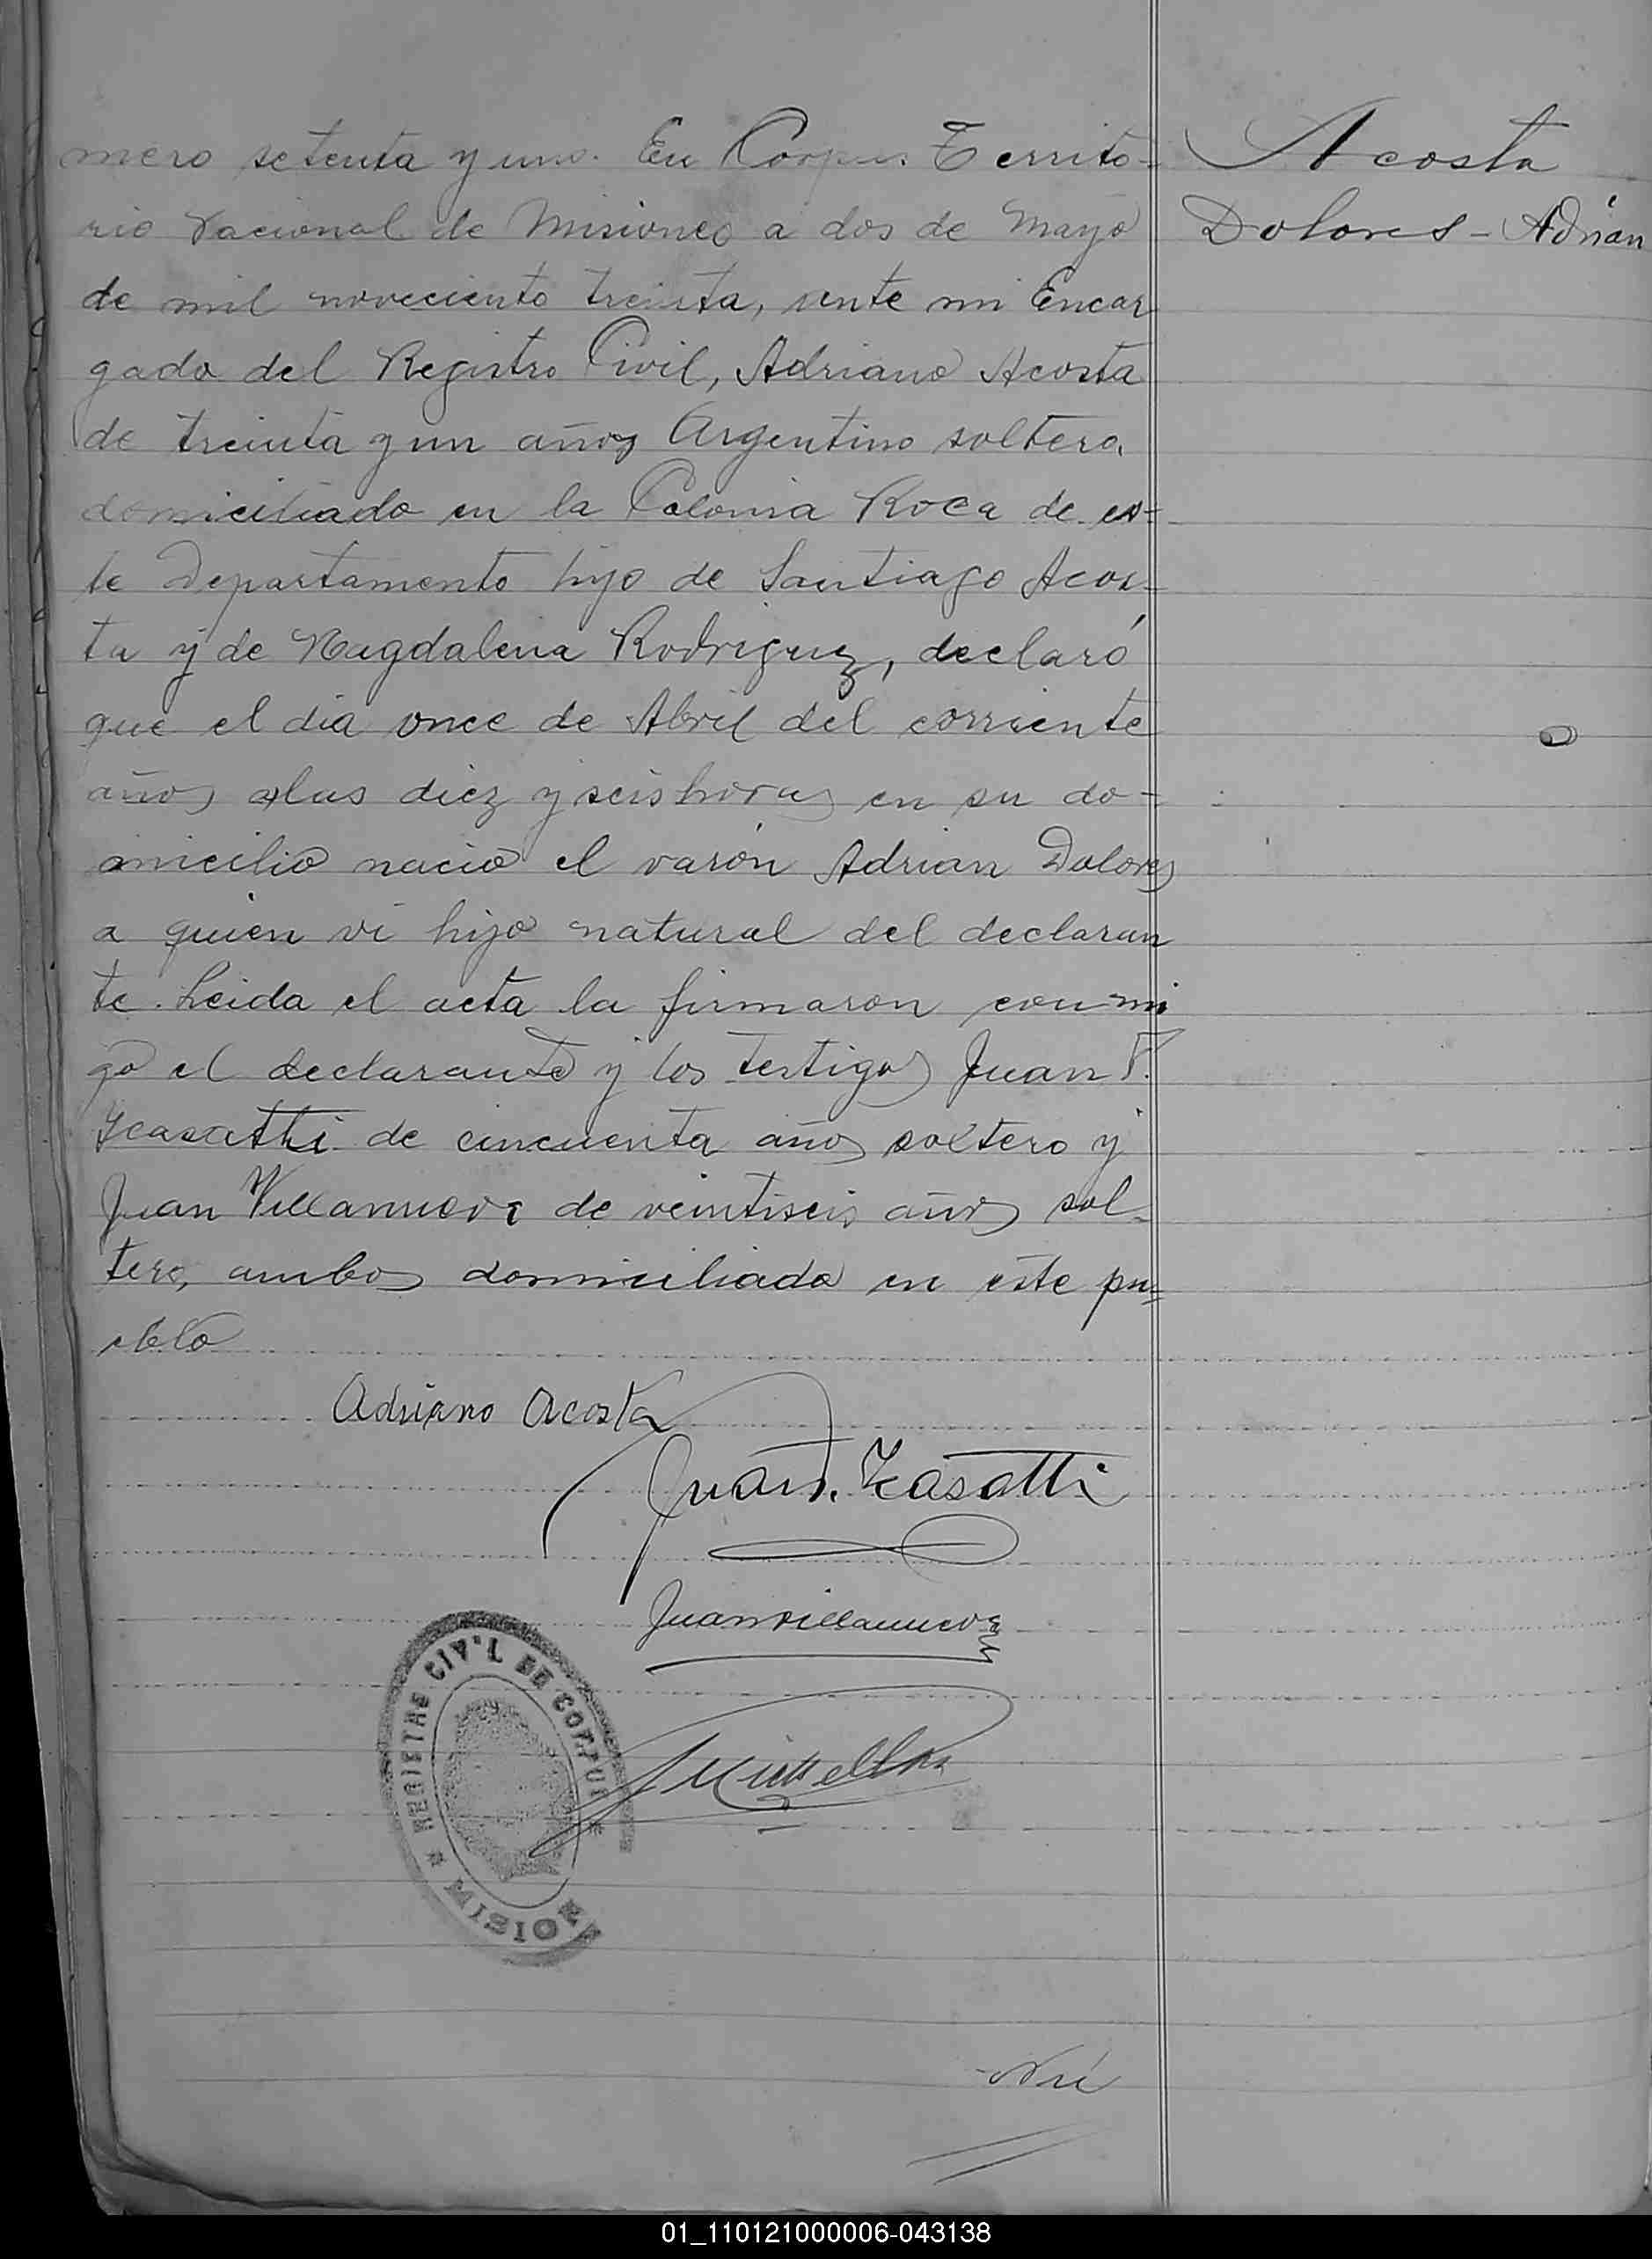 mero setenta y uno. En Corpus. Territo-
rio Nacional de Misiones a dos de Mayo
de mil noveciento treinta, ante mi Encar
gado del Registro Civil, Adriano Acosta
de treinta y un años Argentino soltero.
domiciliado en la Colonia Roca de es=
te Departamento hijo de Santiago Acos=
ta y de Magdalena Rodriguez, declaró
que el dia once de Abril del corriente
años alas diez y seis horas en su do-
micilio nació el varón Adrian Dolores
a quien vi hijo natural del declaran
te. Leida el acta la firmaron con mi
go el declarante y los testigos Juan
de cincuenta años soltero y
Juan Villanueva de veintiseis años sol-
tero, ambos domiciliado en este pu=
eblo
Acosta
Dolores - Adrián
Adriano Acosta
Juan Villanueva
REGISTRO CIVIL DE CORPUS
MISIONES
Nú
01_110121000006-043138